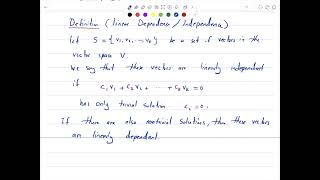 Definition ( linear Dependence / Independence )
let S = { v₁, v₂, ..., vₖ } be a set of vectors in the
vector space V.
We say that these vectors are linearly independent
if
c₁ v₁ + c₂ v₂ + ... + cₖ vₖ = 0
has only trivial solution cᵢ = 0.
If there are also nontrivial solutions, then these vectors
are linearly dependent.